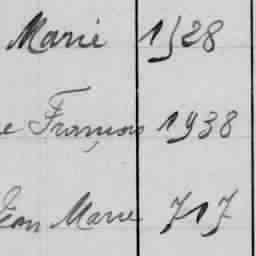 Marie 1528
e François 1938
Jean Marie 717